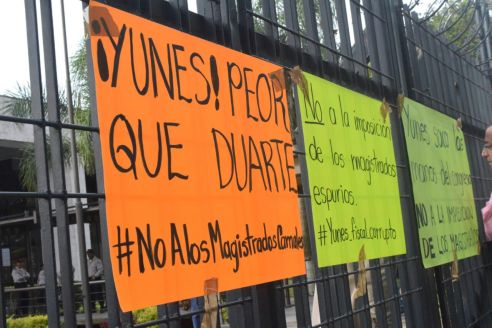 ¡YUNES! PEOR
QUE DUARTE
#NoAlosMagistradosCarnales
No a la imposición
de los magistrados
espurios.
#Yunes_fiscal_corrupto
Yunes saca las
manos del
NO A LA IMPOSICIÓN
DE LOS